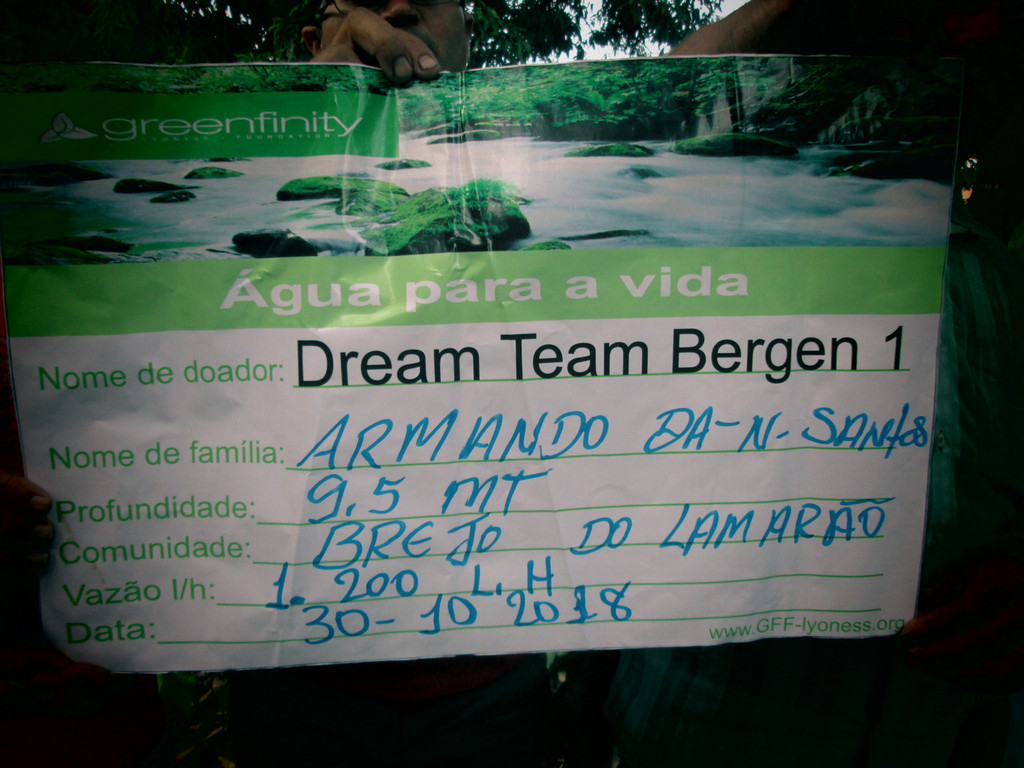 greenfinity
FOUNDATION
Água para a vida
Nome de doador: Dream Team Bergen 1
Nome de família: ARMANDO DA-N-SANtos
Profundidade: 9,5 MT
Comunidade: BREJO DO LAMARÃO
Vazão l/h: 1.200 L.H
Data: 30-10 2018
www.GFF-lyoness.org